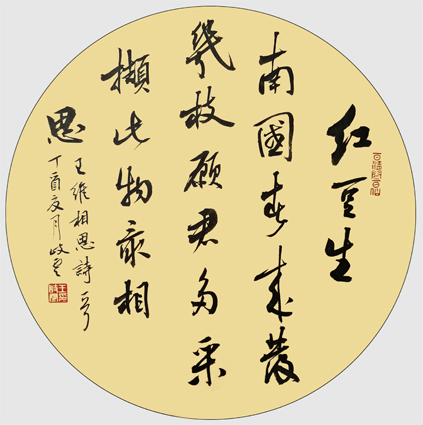 紅豆生
南國春來發
幾枝願君多采
擷此物最相
思
王維相思詩
丁酉夏月